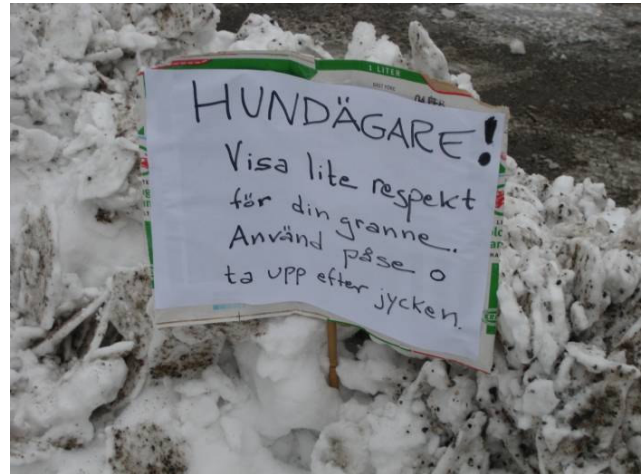 1 LITER
HUNDÄGARE!
Visa lite respekt
för din granne.
Använd påse o
ta upp efter jycken.